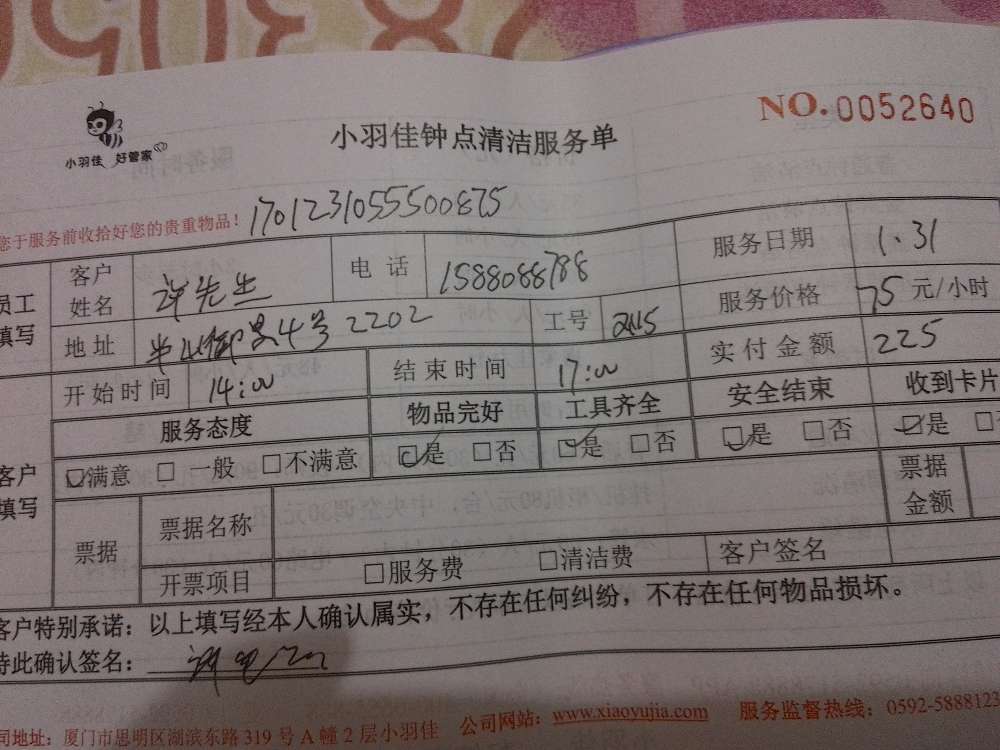 小羽佳 好管家
小羽佳钟点清洁服务单
NO.0052640
您于服务前收拾好您的贵重物品！ 1701231055500875
员工填写
客户姓名 许先生 电话 1588088788 服务日期 1.31
地址 半山御景4号2202 工号 服务价格 75元/小时
开始时间 14:00 结束时间 17:00 实付金额 225
客户填写
服务态度 物品完好 工具齐全 安全结束 收到卡片
☑满意 □一般 □不满意 ☑是 □否 ☑是 □否 ☑是 □否 ☑是 □
票据 票据名称 票据金额
开票项目 □服务费 □清洁费 客户签名
客户特别承诺：以上填写经本人确认属实，不存在任何纠纷，不存在任何物品损坏。
特此确认签名：
司地址：厦门市思明区湖滨东路319号A幢2层小羽佳 公司网站：www.xiaoyujia.com 服务监督热线：0592-5888123